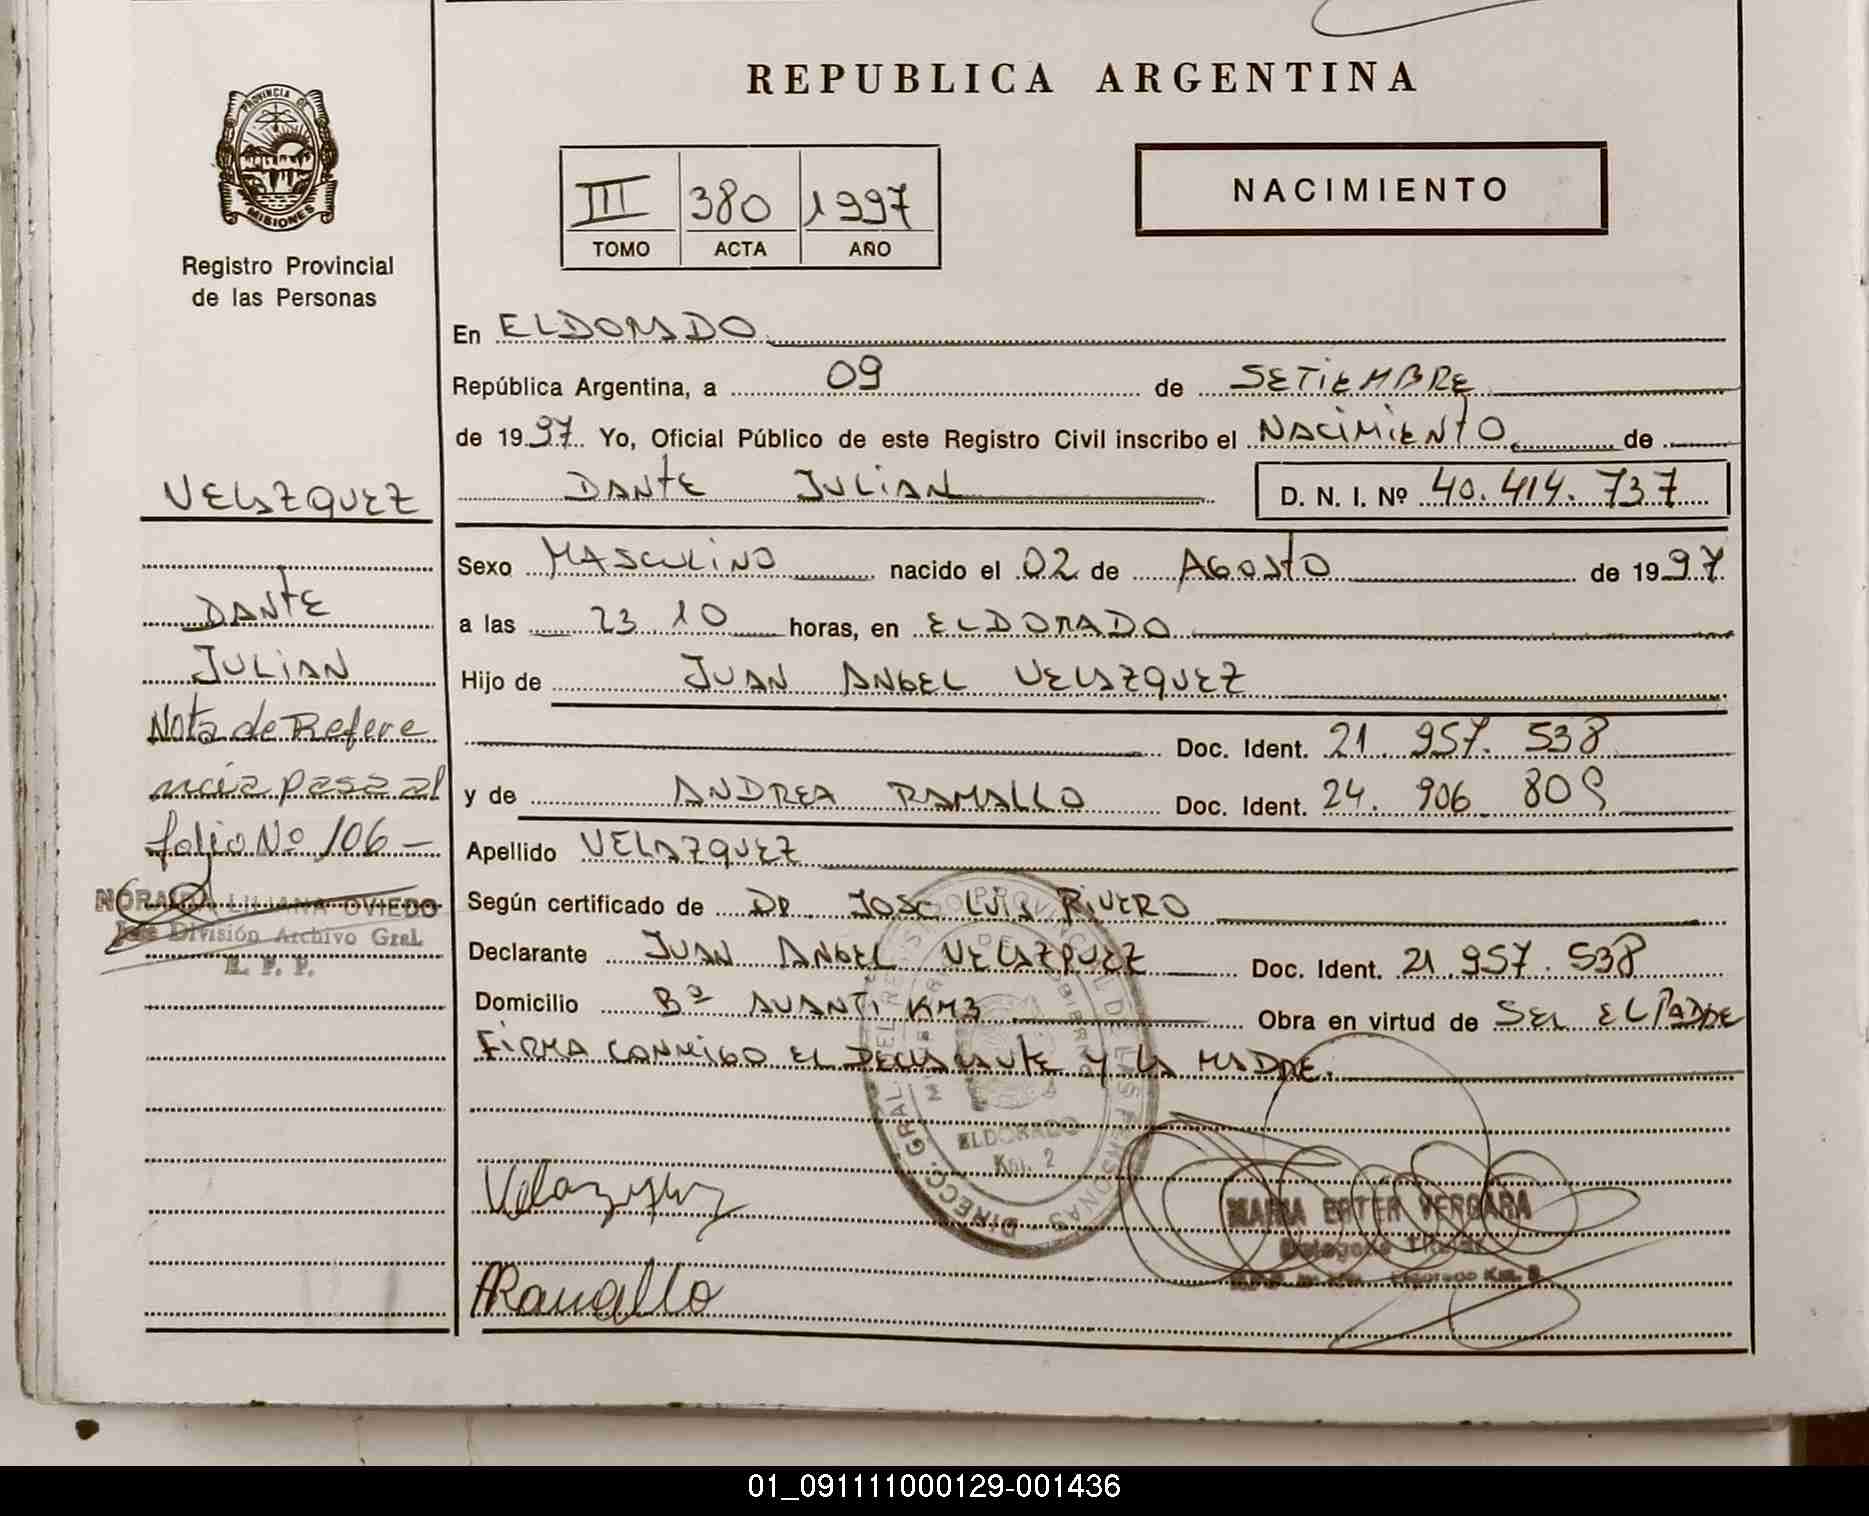 REPUBLICA ARGENTINA
PROVINCIA DE
MISIONES
Registro Provincial
de las Personas
III 380 1997
TOMO ACTA AÑO
NACIMIENTO
En ELDORADO
República Argentina, a 09 de SETIEMBRE
de 1997 Yo, Oficial Público de este Registro Civil inscribo el NACIMIENTO de
DANTE JULIAN D. N. I. Nº 40.414.737
Sexo MASCULINO nacido el 02 de AGOSTO de 1997
a las 23 10 horas, en ELDORADO
Hijo de JUAN ANGEL VELAZQUEZ
Doc. Ident. 21.957.538
y de ANDREA RAMALLO Doc. Ident. 24.906.809
Apellido VELAZQUEZ
Según certificado de DR. JOSE LUIS RIVERO
Declarante JUAN ANGEL VELAZQUEZ Doc. Ident. 21.957.538
Domicilio Bº AVANTI KM3 Obra en virtud de SER EL PADRE
FIRMA CONMIGO EL DECLARANTE Y LA MADRE.
VELAZQUEZ
DANTE
JULIAN
Nota de Refere
ncia pasa al
folio Nº 106 -
LILIANA OVIEDO
Jefe División Archivo Gral.
R. P. P.
DIRECC. GRAL. DEL REGISTRO PROVINCIAL DE LAS PERSONAS
ELDORADO
Km. 2
Velazquez
ARamallo
MARIA ESTER VERGARA
Delegada Titular
01_091111000129-001436